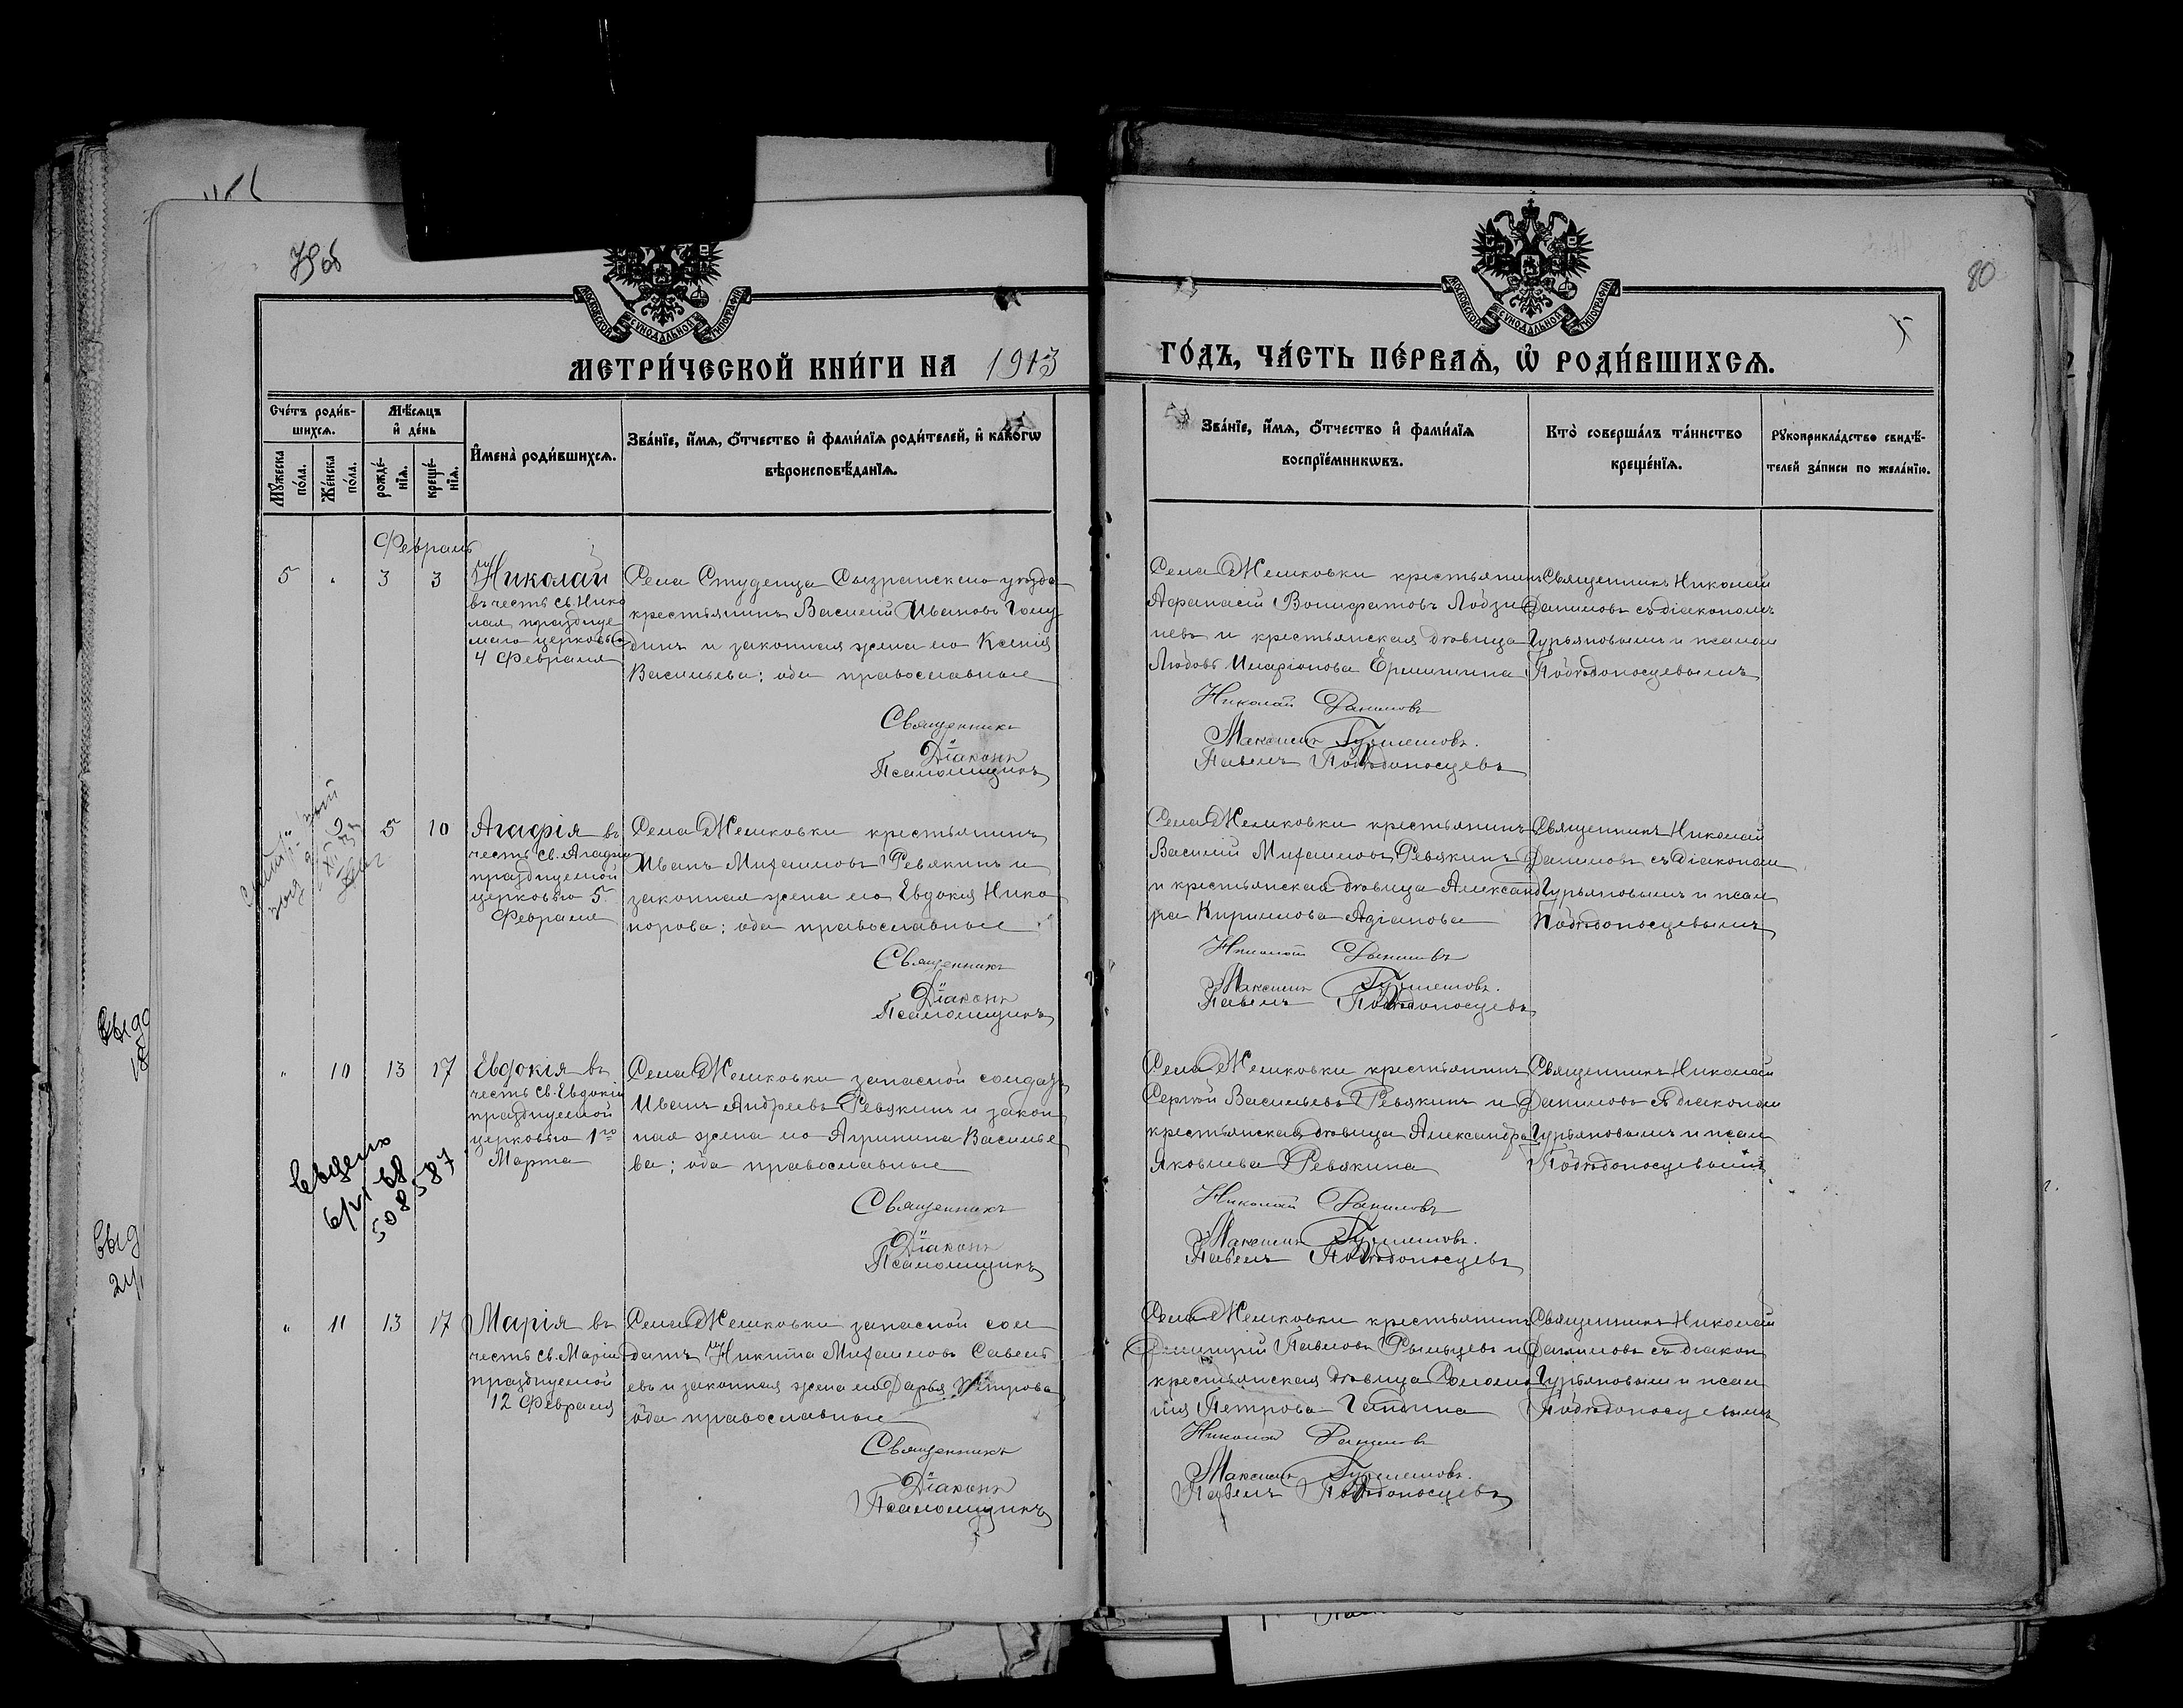 79 об
80
5
МОСКОВСКОЙ СѴНОДАЛЬНОЙ ТИПОГРАФІИ
МОСКОВСКОЙ СѴНОДАЛЬНОЙ ТИПОГРАФІИ
МЕТРИ́ЧЕСКОЙ КНИ́ГИ НА 1913
ГО́ДЪ, ЧА́СТЬ ПЕ́РВАѦ, Ѡ҆ РОДИ́ВШИХСѦ.
Сче́тъ роди́в-
шихсѧ.
Мꙋ́жеска
по́ла.
Же́нска
по́ла.
Мѣ́сѧцъ
и҆ де́нь
рожде́-
нїѧ.
креще́-
нїѧ.
И҆мена̀ роди́вшихсѧ.
Зва́нїе, и҆́мѧ, ѻ҆́тчество и҆ фамѝлїѧ роди́телей, и҆ какогѡ
вѣроисповѣ́данїѧ.
Зва́нїе, и҆́мѧ, ѻ҆́тчество и҆ фами́лїѧ
воспрїе́мникѡвъ.
Кто̀ соверша́лъ та́инство
креще́нїѧ.
Рꙋкоприкла́дство свидѣ́-
телей за́писи по жела́нїю.
Февраль
5 " 3 3
Николай
въ честь св. Нико
лая праздну
маго церковью
4 Февраля
Села Студенца Сызранскаго уѣзда
крестьянинъ Василій Ивановъ Голу
динъ и законная жена его Ксенія
Васильева; оба православные
Священникъ
Діаконъ
Псаломщикъ
Села Жемковки крестьянинъ
Афанасій Вонифатовъ Лодзи
невъ и крестьянская дѣвица
Любовь Иларіонова Ермишина
Николай Даниловъ
Максимъ
Павелъ Побѣдоносцевъ
Священникъ Николай
Даниловъ съ діакономъ
Гурьяновымъ и псалом
Побѣдоносцевымъ
9 5 10
Агафія въ
честь св. Агафіи
празднуемой
церковью 5
Февраля
Села Жемковки крестьянинъ
Иванъ Михаиловъ Ревякинъ и
законная жена его Евдокія Нико
норова; оба православные
Священникъ
Діаконъ
Псаломщикъ
Села Жемковки крестьянинъ
Василій Михаиловъ Ревякинъ
и крестьянская дѣвица Александ
ра Кириллова Адіанова
Николай Даниловъ
Максимъ
Павелъ Побѣдоносцевъ
Священникъ Николай
Даниловъ съ діаконом
Гурьяновымъ и псал
Побѣдоносцевымъ
" 10 13 17
Евдокія въ
честь св. Евдокіи
празднуемой
церковью 1го
Марта
выдено
6/VI 68
508587
Села Жемковки запасной солдатъ
Иванъ Андреевъ Ревякинъ и закон
ная жена его Агрипина Василье
ва; оба православные
Священникъ
Діаконъ
Псаломщикъ
Села Жемковки крестьянинъ
Сергѣй Васильевъ Ревякинъ и
крестьянская дѣвица Александра
Яковлева Ревякина
Николай Даниловъ
Максимъ
Павелъ Побѣдоносцевъ
Священникъ Николай
Даниловъ съ діаконом
Гурьяновымъ и псал
Побѣдоносцевымъ
" 11 13 17
Марія въ
честь св. Маріи
празднуемой
12 Февраля
Села Жемковки запасной сол
датъ Никита Михаиловъ Савель
евъ и законная жена его Дарья Петрова
оба православные
Священникъ
Діаконъ
Псаломщикъ
Села Жемковки крестьянинъ
Димитрій Павловъ Рыльцевъ и
крестьянская дѣвица Соломо
нія Петрова
Николай Даниловъ
Максимъ
Павелъ Побѣдоносцевъ
Священникъ Николай
Даниловъ съ діакон
Гурьяновым и псал
Побѣдоносцевымъ
выд
18
выд
24